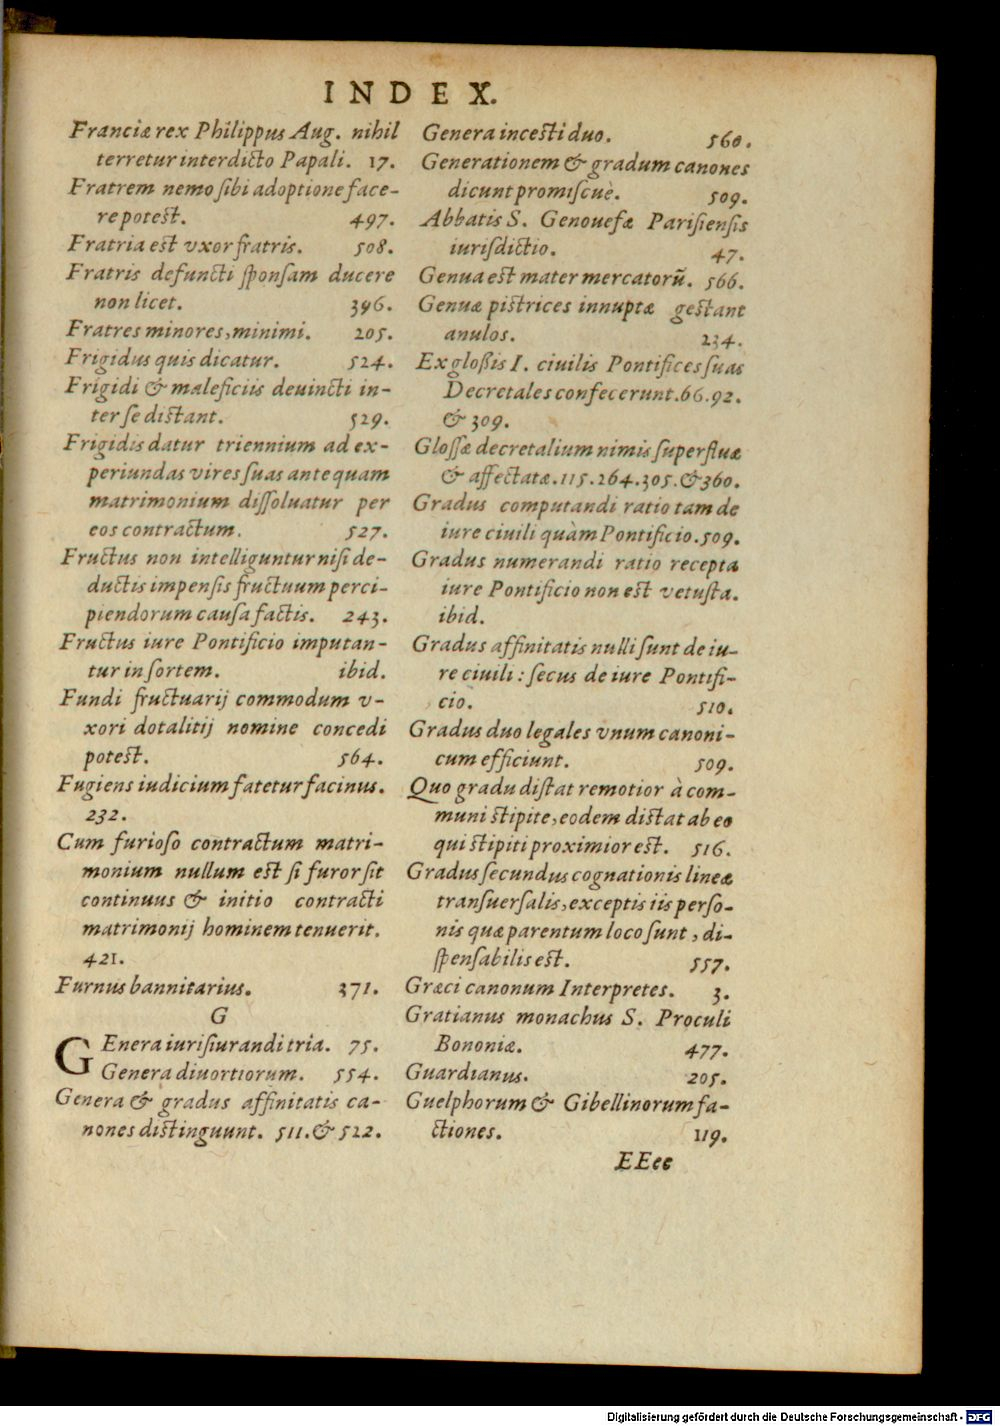 INDEX.
Franciæ rex Philippus Aug. nihil
terretur interdicto Papali. 17.
Fratrem nemo sibi adoptione face-
re potest. 497.
Fratria est vxor fratris. 508.
Fratris defuncti sponsam ducere
non licet. 396.
Fratres minores, minimi. 205.
Frigidus quis dicatur. 524.
Frigidi & maleficiis deuincti in-
ter se distant. 529.
Frigidis datur triennium ad ex-
periundas vires suas ante quam
matrimonium dissoluatur per
eos contractum. 527.
Fructus non intelliguntur nisi de-
ductis impensis fructuum perci-
piendorum causa factis. 243.
Fructus iure Pontificio imputan-
tur in sortem. ibid.
Fundi fructuarij commodum v-
xori dotalitij nomine concedi
potest. 564.
Fugiens iudicium fatetur facinus.
232.
Cum furioso contractum matri-
monium nullum est si furor sit
continuus & initio contracti
matrimonij hominem tenuerit.
421.
Furnus bannitarius. 371.
G
GEnera iurisiurandi tria. 75.
Genera diuortiorum. 554.
Genera & gradus affinitatis ca-
nones distinguunt. 511. & 522.
Genera incesti duo. 560.
Generationem & gradum canones
dicunt promiscuè. 509.
Abbatis S. Genouefæ Parisiensis
iurisdictio. 47.
Genua est mater mercatorũ. 566.
Genuæ pistrices innuptæ gestant
anulos. 234.
Ex glossis I. ciuilis Pontifices suas
Decretales confecerunt. 66. 92.
& 309.
Glossæ decretalium nimis superfluæ
& affectatæ. 115. 264. 305. & 360.
Gradus computandi ratio tam de
iure ciuili quàm Pontificio. 509.
Gradus numerandi ratio recepta
iure Pontificio non est vetusta.
ibid.
Gradus affinitatis nulli sunt de iu-
re ciuili : secus de iure Pontifi-
cio. 510.
Gradus duo legales vnum canoni-
cum efficiunt. 509.
Quo gradu distat remotior à com-
muni stipite, eodem distat ab eo
qui stipiti proximior est. 516.
Gradus secundus cognationis lineæ
transuersalis, exceptis iis perso-
nis quæ parentum loco sunt, di-
spensabilis est. 557.
Græci canonum Interpretes. 3.
Gratianus monachus S. Proculi
Bononiæ. 477.
Guardianus. 205.
Guelphorum & Gibellinorum fa-
ctiones. 119.
EEee
Digitalisierung gefördert durch die Deutsche Forschungsgemeinschaft - DFG